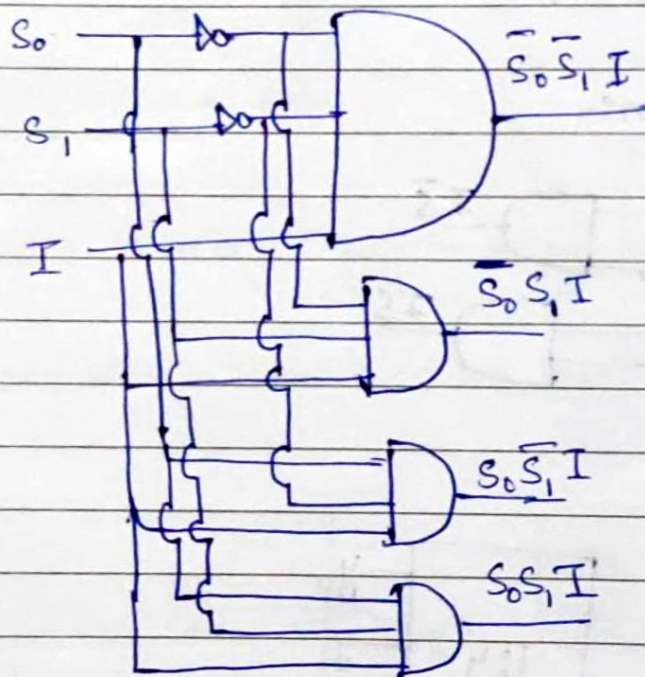 S₀
S̅₀ S̅₁ I
S₁
I
S̅₀ S₁ I
S₀ S̅₁ I
S₀ S₁ I